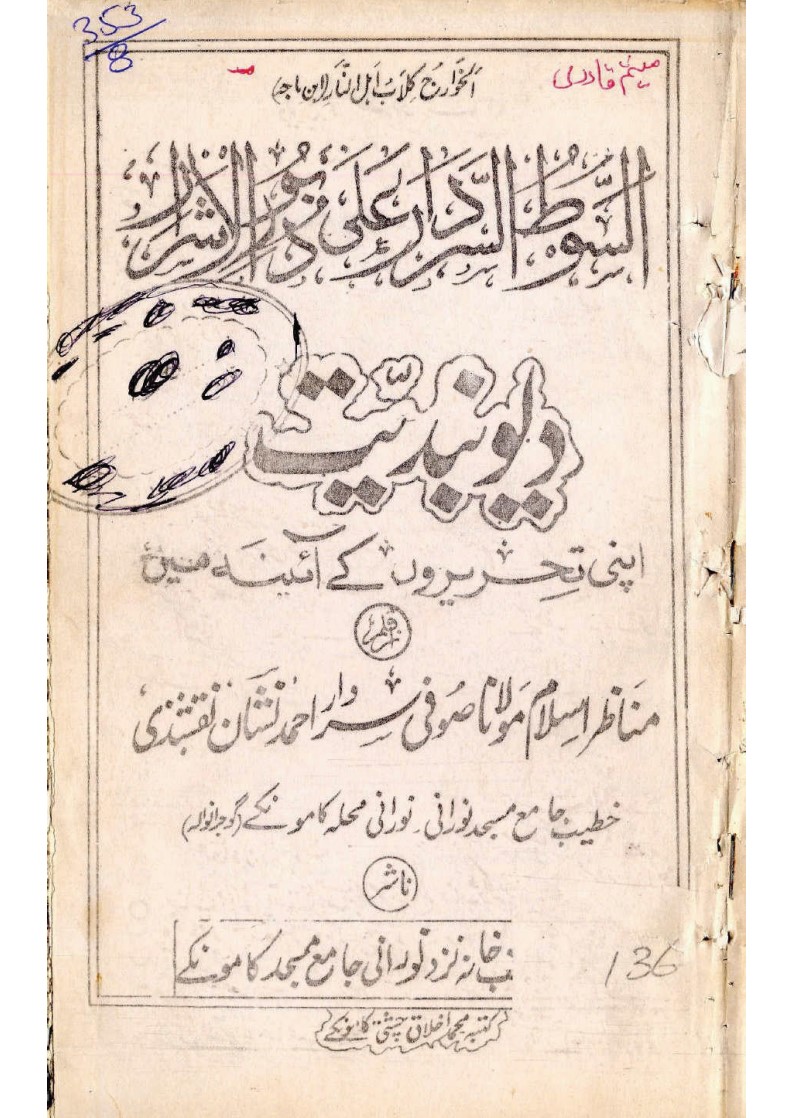 353/8
میثم قادری
الخوارج کلاب اہل النار (ابن ماجہ)
السّوط السّردار علی دبور الاشرار
دیوبندیّت
اپنی تحریروں کے آئینہ میں
از قلم
مناظر اسلام مولانا صوفی سردار احمد نشان نقشبندی
خطیب جامع مسجد نورانی، نورانی محلہ کامونکے (گوجرانوالہ)
ناشر
خانہ نزد نورانی جامع مسجد کامونکے
136
کتبہ محمد اخلاق چشتی کامونکے